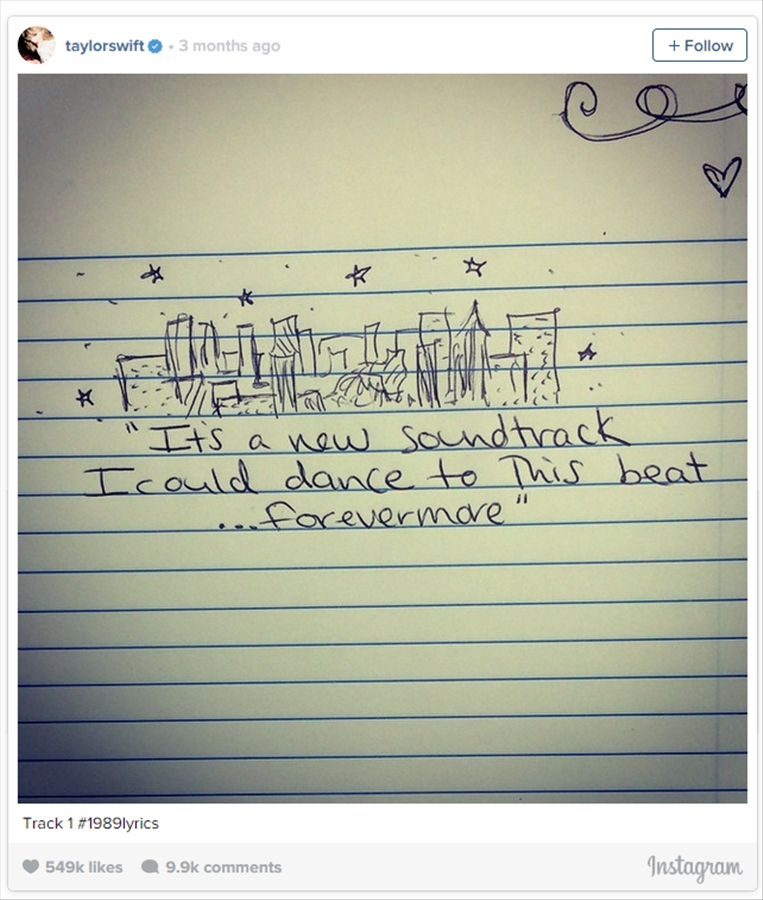 taylorswift • 3 months ago
+ Follow
"It's a new soundtrack
I could dance to This beat
...forevermore"
Track 1 #1989lyrics
549k likes 9.9k comments
Instagram